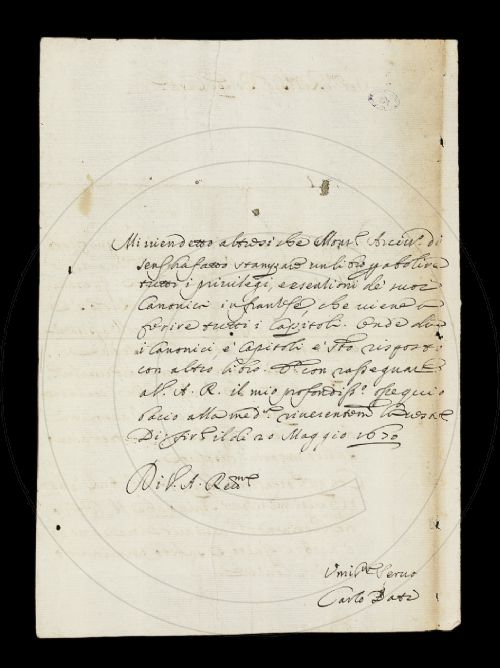 Mi vien detto altresì che Mons.r Arciv.o di
Sens ha fatto stampare un libro p abolire
tutti i privilegi, e esentioni de suoi
Canonici in franzese, che viene a
ferire tutti i Capitoli. Onde
i Canonici e Capitoli
con altro libro. con rassegnare
a V. A. R. il mio profondiss.o ossequio
bacio alla med.a riverentem.te la vesta
Di il di 20 Maggio 1670
Di V. A. Rev.ma
Umiliss.o Servo
Carlo Dati